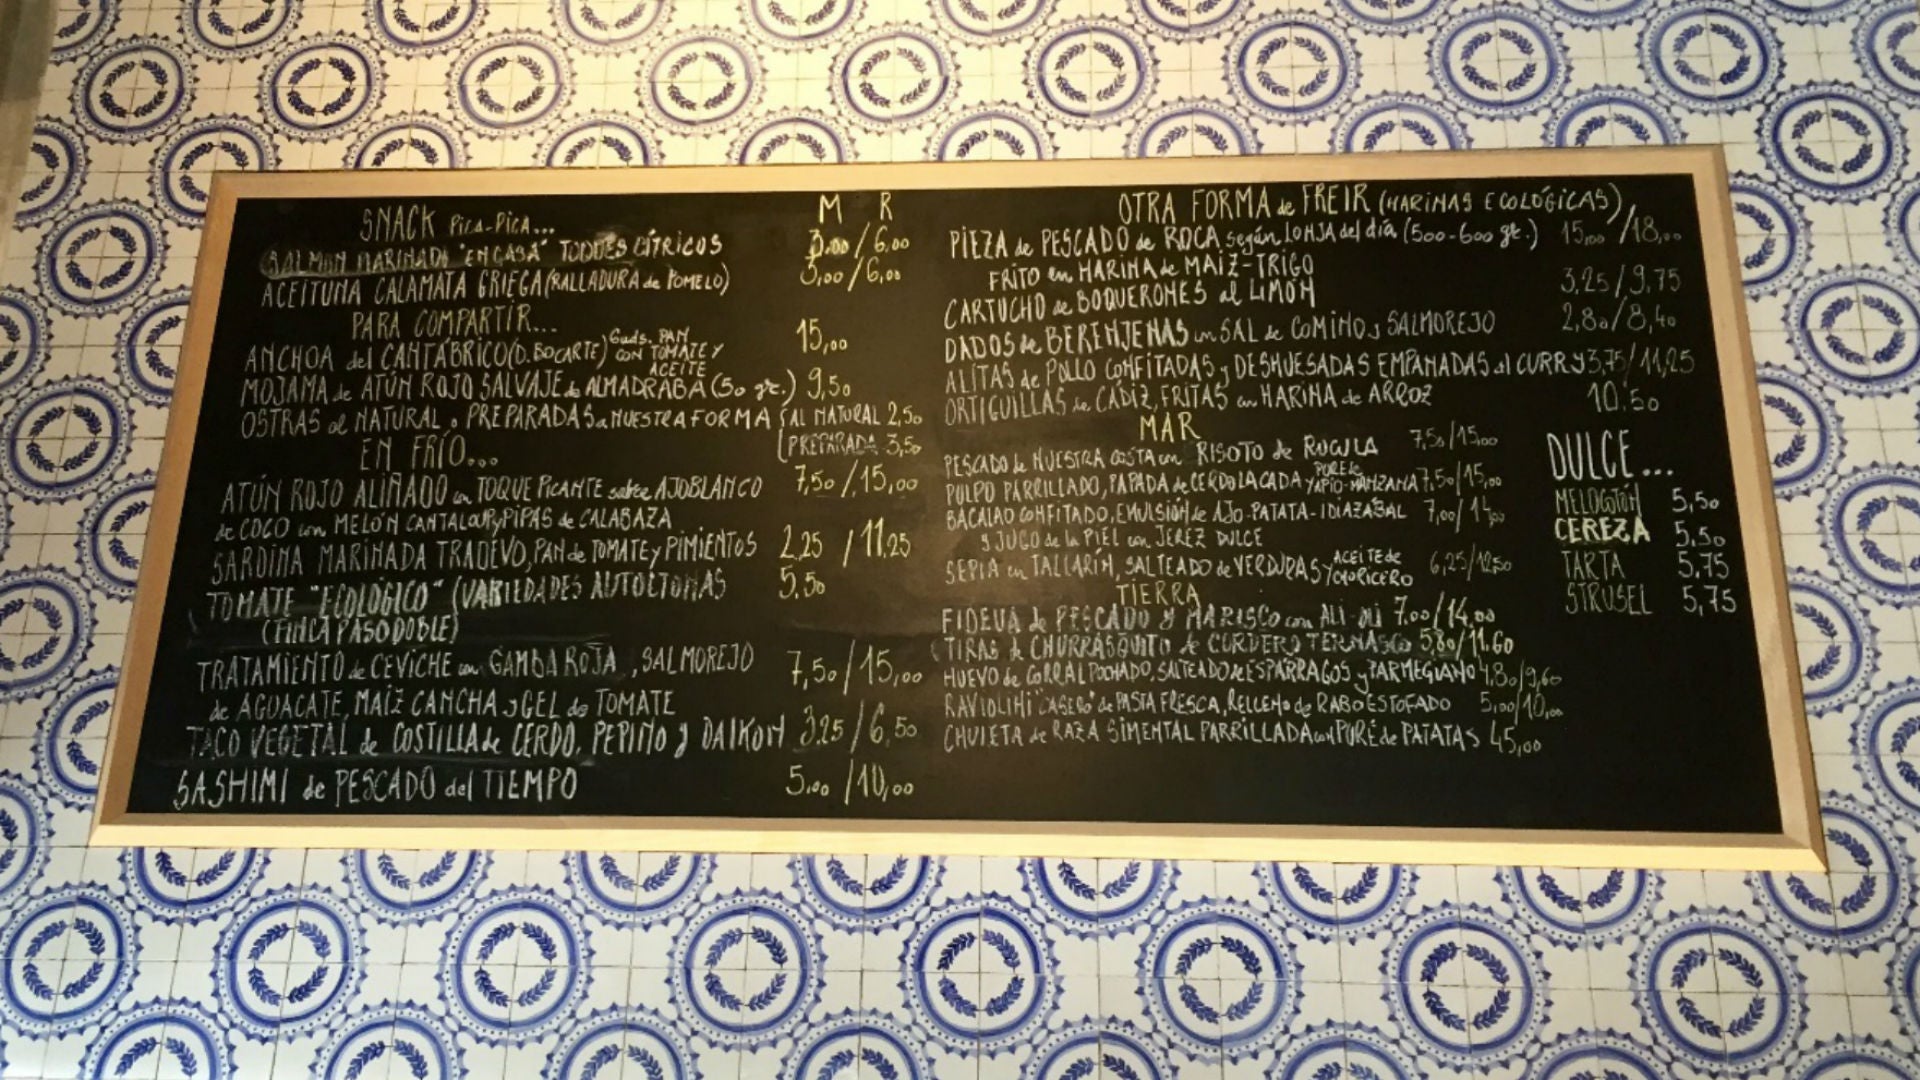 M R
SNACK PICA-PICA...
SALMON MARINADO "EN CASA" TOQUES CÍTRICOS 3,00/6,00
ACEITUNA CALAMATA GRIEGA (RALLADURA de POMELO) 3,00/6,00
PARA COMPARTIR...
ANCHOA del CANTÁBRICO (D. BOCARTE) 6uds. PAN CON TOMATE Y ACEITE 15,00
MOJAMA de ATÚN ROJO SALVAJE de ALMADRABA (50 gr.) 9,50
OSTRAS al NATURAL o PREPARADAS a NUESTRA FORMA AL NATURAL 2,50
PREPARADA 3,50
EN FRÍO...
ATÚN ROJO ALIÑADO con TOQUE PICANTE sobre AJOBLANCO 7,50/15,00
de COCO con MELÓN CANTALOUP y PIPAS de CALABAZA
SARDINA MARINADA TRADEVO, PAN de TOMATE y PIMIENTOS 2,25/11,25
TOMATE "ECOLÓGICO" (VARIEDADES AUTOCTONAS 5,50
(FINCA PASODOBLE)
TRATAMIENTO de CEVICHE con GAMBA ROJA, SALMOREJO 7,50/15,00
de AGUACATE, MAÍZ CANCHA y GEL de TOMATE
TACO VEGETAL de COSTILLA de CERDO, PEPINO y DAIKON 3,25/6,50
SASHIMI de PESCADO del TIEMPO 5,00/10,00
OTRA FORMA de FREIR (HARINAS ECOLÓGICAS)
PIEZA de PESCADO de ROCA según LONJA del día (500-600 gr.) 15,00/18,00
FRITO en HARINA de MAIZ-TRIGO
CARTUCHO de BOQUERONES al LIMON 3,25/9,75
DADOS de BERENJENAS con SAL de COMINO y SALMOREJO 2,80/8,40
ALITAS de POLLO CONFITADAS y DESHUESADAS EMPANADAS al CURRY 3,75/11,25
ORTIGUILLAS de CÁDIZ, FRITAS en HARINA de ARROZ 10.50
MAR
PESCADO de NUESTRA COSTA con RISOTO de RUCULA 7,50/15,00
PULPO PARRILLADO, PAPADA de CERDO LACADA y PURE de APIO-MANZANA 7,50/15,00
BACALAO CONFITADO, EMULSIÓN de AJO-PATATA-IDIAZABAL 7,00/14,00
y JUGO de la PIEL con JEREZ DULCE
SEPIA en TALLARÍN, SALTEADO de VERDURAS y ACEITE de CHORICERO 6,25/12,50
TIERRA
FIDEUÁ de PESCADO y MARISCO con ALI-OLI 7.00/14.00
TIRAS de CHURRASQUITO de CORDERO TERNASCO 5,80/11.60
HUEVO de CORRAL POCHADO, SALTEADO de ESPÁRRAGOS y PARMEGIANO 4,80/9,60
RAVIOLINI "CASERO" de PASTA FRESCA, RELLENO de RABO ESTOFADO 5,00/10,00
CHULETA de RAZA SIMENTAL PARRILLADA con PURÉ de PATATAS 45,00
DULCE...
MELOCOTÓN 5,50
CEREZA 5,50
TARTA 5,75
STRUSEL 5,75